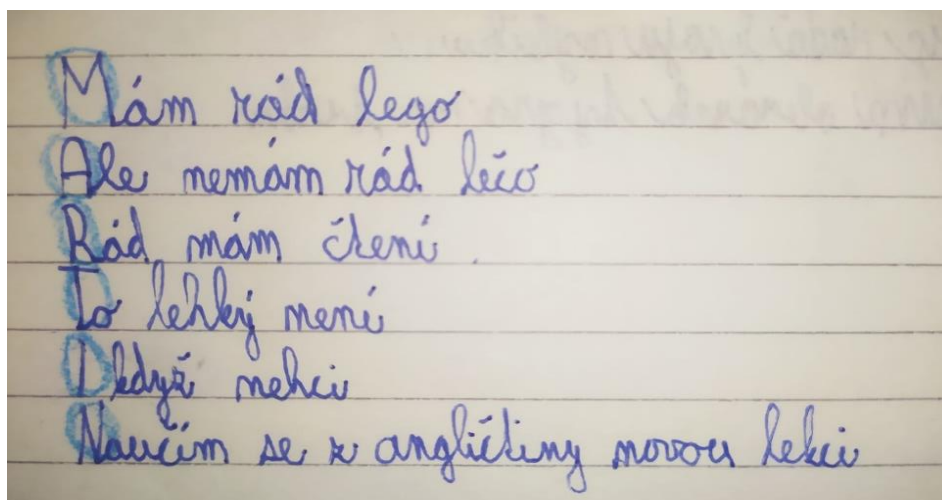 Mám rád lego
Ale nemám rád lečo
Rád mám čtení.
To lehký není
I když nehci
Naučím se z angličtiny novou lekci